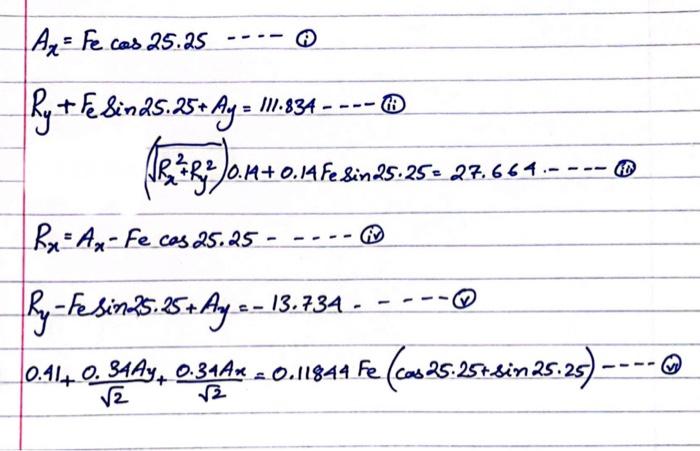 Ax = Fe cos 25.25 ---- (i)
Ry + Fe Sin 25.25 + Ay = 111.834 ---- (ii)
(√Rx²+Ry²) 0.14 + 0.14 Fe sin 25.25 = 27.664 .---- (iii)
Rx = Ax - Fe cos 25.25 - ---- (iv)
Ry - Fe sin 25.25 + Ay = - 13.734 - ---- (v)
0.41 + 0.34Ay/√2 + 0.34Ax/√2 = 0.11844 Fe (cos 25.25 + sin 25.25) ---- (vi)